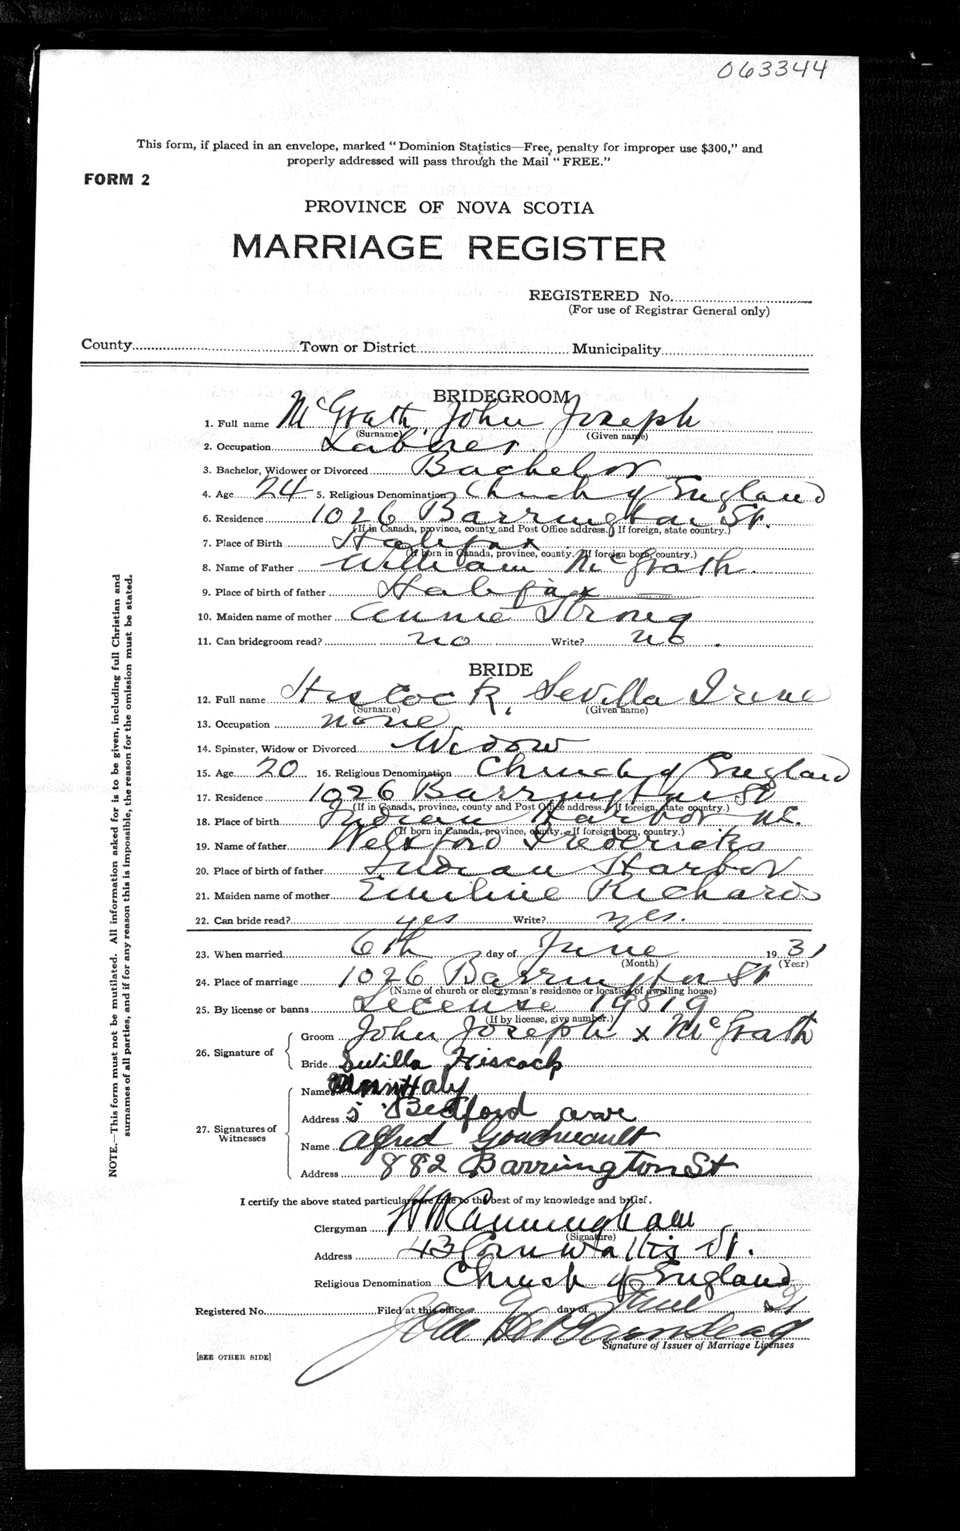 063344
This form, if placed in an envelope, marked "Dominion Statistics—Free, penalty for improper use $300," and
properly addressed will pass through the Mail "FREE."
FORM 2
PROVINCE OF NOVA SCOTIA
MARRIAGE REGISTER
REGISTERED No.
(For use of Registrar General only)
County Town or District Municipality
BRIDEGROOM
1. Full name McGrath, John Joseph
(Surname) (Given name)
2. Occupation Laborer
3. Bachelor, Widower or Divorced Bachelor
4. Age 24 5. Religious Denomination Church of England
6. Residence 1026 Barrington St.
(If in Canada, province, county and Post Office address. If foreign, state country.)
7. Place of Birth Halifax
(If born in Canada, province, county. If foreign born, country.)
8. Name of Father William McGrath
9. Place of birth of father Halifax
10. Maiden name of mother Annie Strong
11. Can bridegroom read? no Write? no.
BRIDE
12. Full name Hiscock, Sevilla Irene
(Surname) (Given name)
13. Occupation none
14. Spinster, Widow or Divorced Widow
15. Age 20 16. Religious Denomination Church of England
17. Residence 1026 Barrington St
(If in Canada, province, county and Post Office address. If foreign, state country.)
18. Place of birth Indian Harbor N.S.
(If born in Canada, province, county. If foreign born, country.)
19. Name of father Welsford Fredericks
20. Place of birth of father Indian Harbor
21. Maiden name of mother Emiline Richards
22. Can bride read? yes Write? yes.
23. When married 6th day of June 1931
(Month) (Year)
24. Place of marriage 1026 Barrington St
(Name of church or clergyman's residence or location of dwelling house)
25. By license or banns License 19819
(If by license, give number.)
26. Signature of Groom John Joseph x McGrath
Bride Sevilla Hiscock
27. Signatures of Witnesses
Name Haly
Address 5 Bedford ave
Name Alfred Goudreault
Address 882 Barrington St
I certify the above stated particulars are true to the best of my knowledge and belief.
Clergyman Cunningham
(Signature)
Address 43 Cornwallis St.
Religious Denomination Church of England
Registered No. Filed at this office 9 day of June 31
John
Signature of Issuer of Marriage Licenses
[SEE OTHER SIDE]
NOTE.—This form must not be mutilated. All information asked for is to be given, including full Christian and
surnames of all parties, and if for any reason this is impossible, the reason for the omission must be stated.